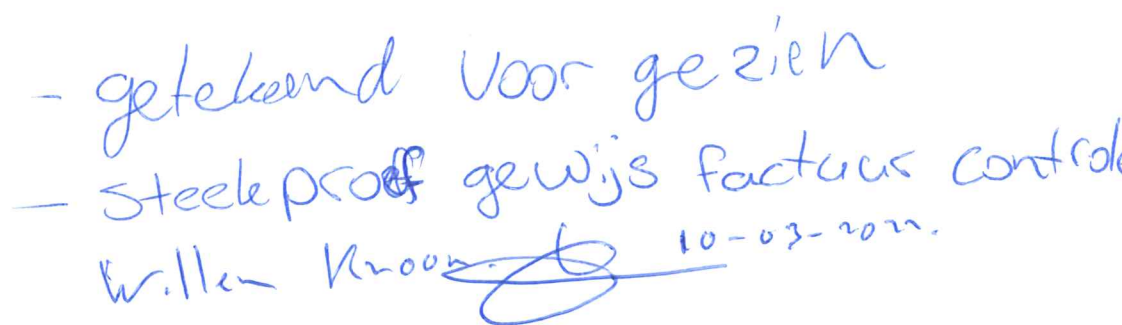 - getekend voor gezien
- steekproef gewijs factuur controle
Willem Kroon. 10-03-2022.